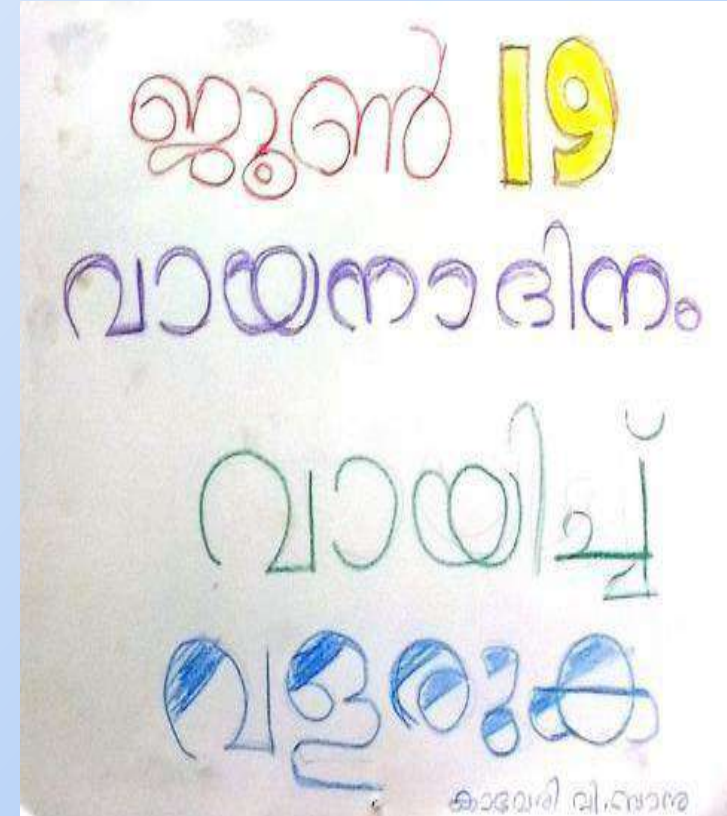 ജൂൺ 19
വായനാദിനം
വായിച്ച്
വളരുക
കാവേരി വി.ബാനു